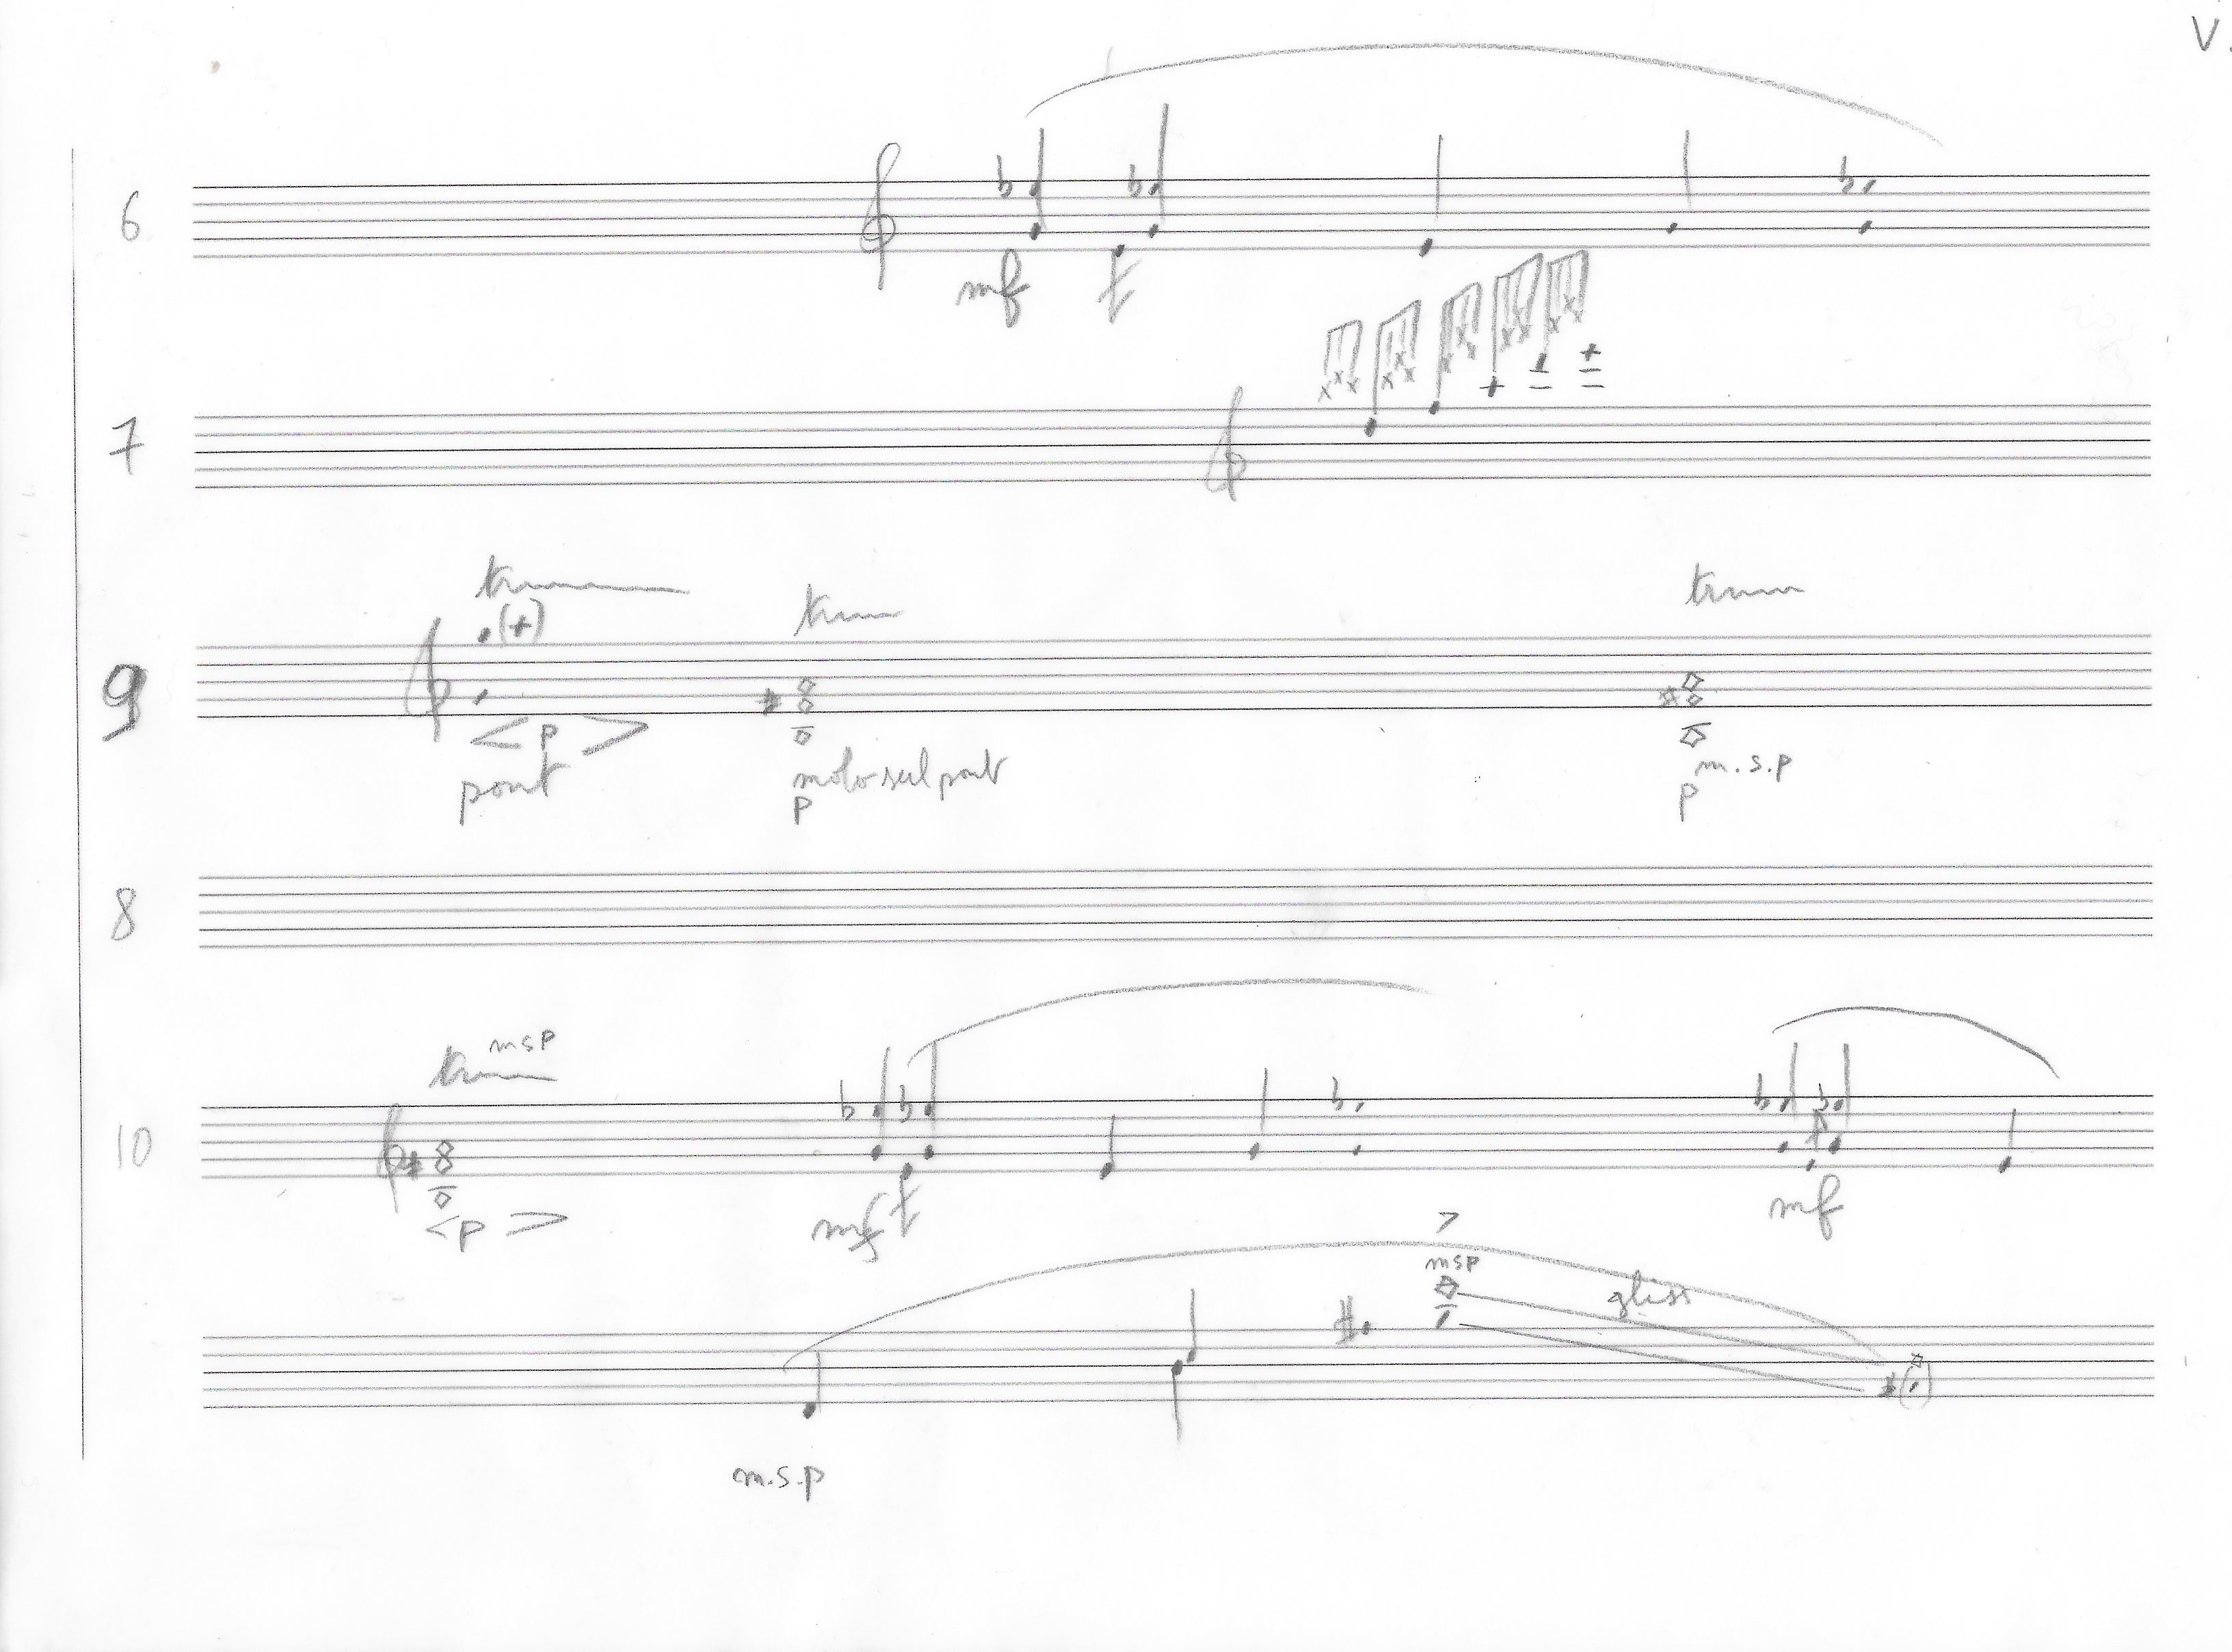 V.
6
mf f
7
9
tr
(+)
tr
tr
< p >
pont
molto sul pont
p
m.s.p
p
8
10
msp
tr
< p >
mf f
mf
>
msp
gliss
m.s.p